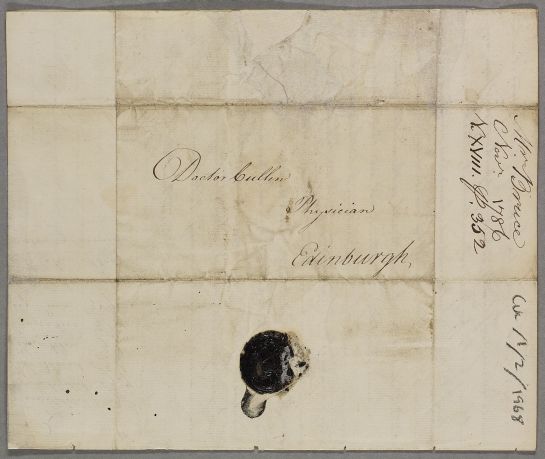 Doctor Cullen
Physician
Edinburgh,
Mr. Bruce
Novr. 1786
XXVIII. P. 352
Cu 1/2/1968